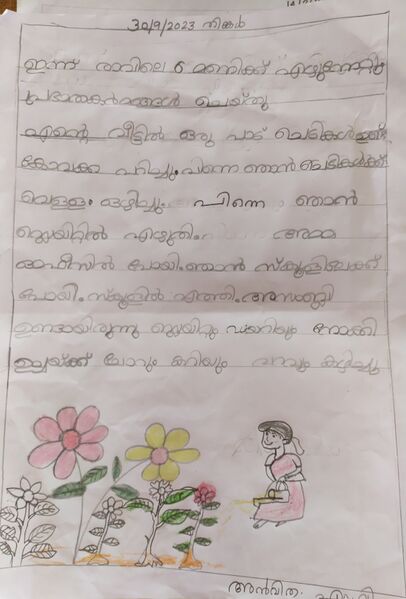 30/9/2023 തിങ്കൾ
ഇന്ന് രാവിലെ 6 മണിക്ക് എഴുന്നേറ്റു
പ്രഭാതകർമങ്ങൾ ചെയ്തു
എന്റെ വീട്ടിൽ ഒരു പാട് ചെടികൾ ഉണ്ട്
കോവക്ക പറിച്ചു. പിന്നെ ഞാൻ ചെടികൾക്ക്
വെള്ളം ഒഴിച്ചു. പിന്നെ ഞാൻ
ബുക്കിൽ എഴുതി. അമ്മ
ഓഫീസിൽ പോയി. ഞാൻ സ്കൂളിലേക്ക്
പോയി. സ്കൂളിൽ എത്തി. അസംബ്ലി
ഉണ്ടായിരുന്നു ഡയറിയും നോക്കി
ഉച്ചയ്ക്ക് ചോറും കറിയും കഴിച്ചു
അൻവിത